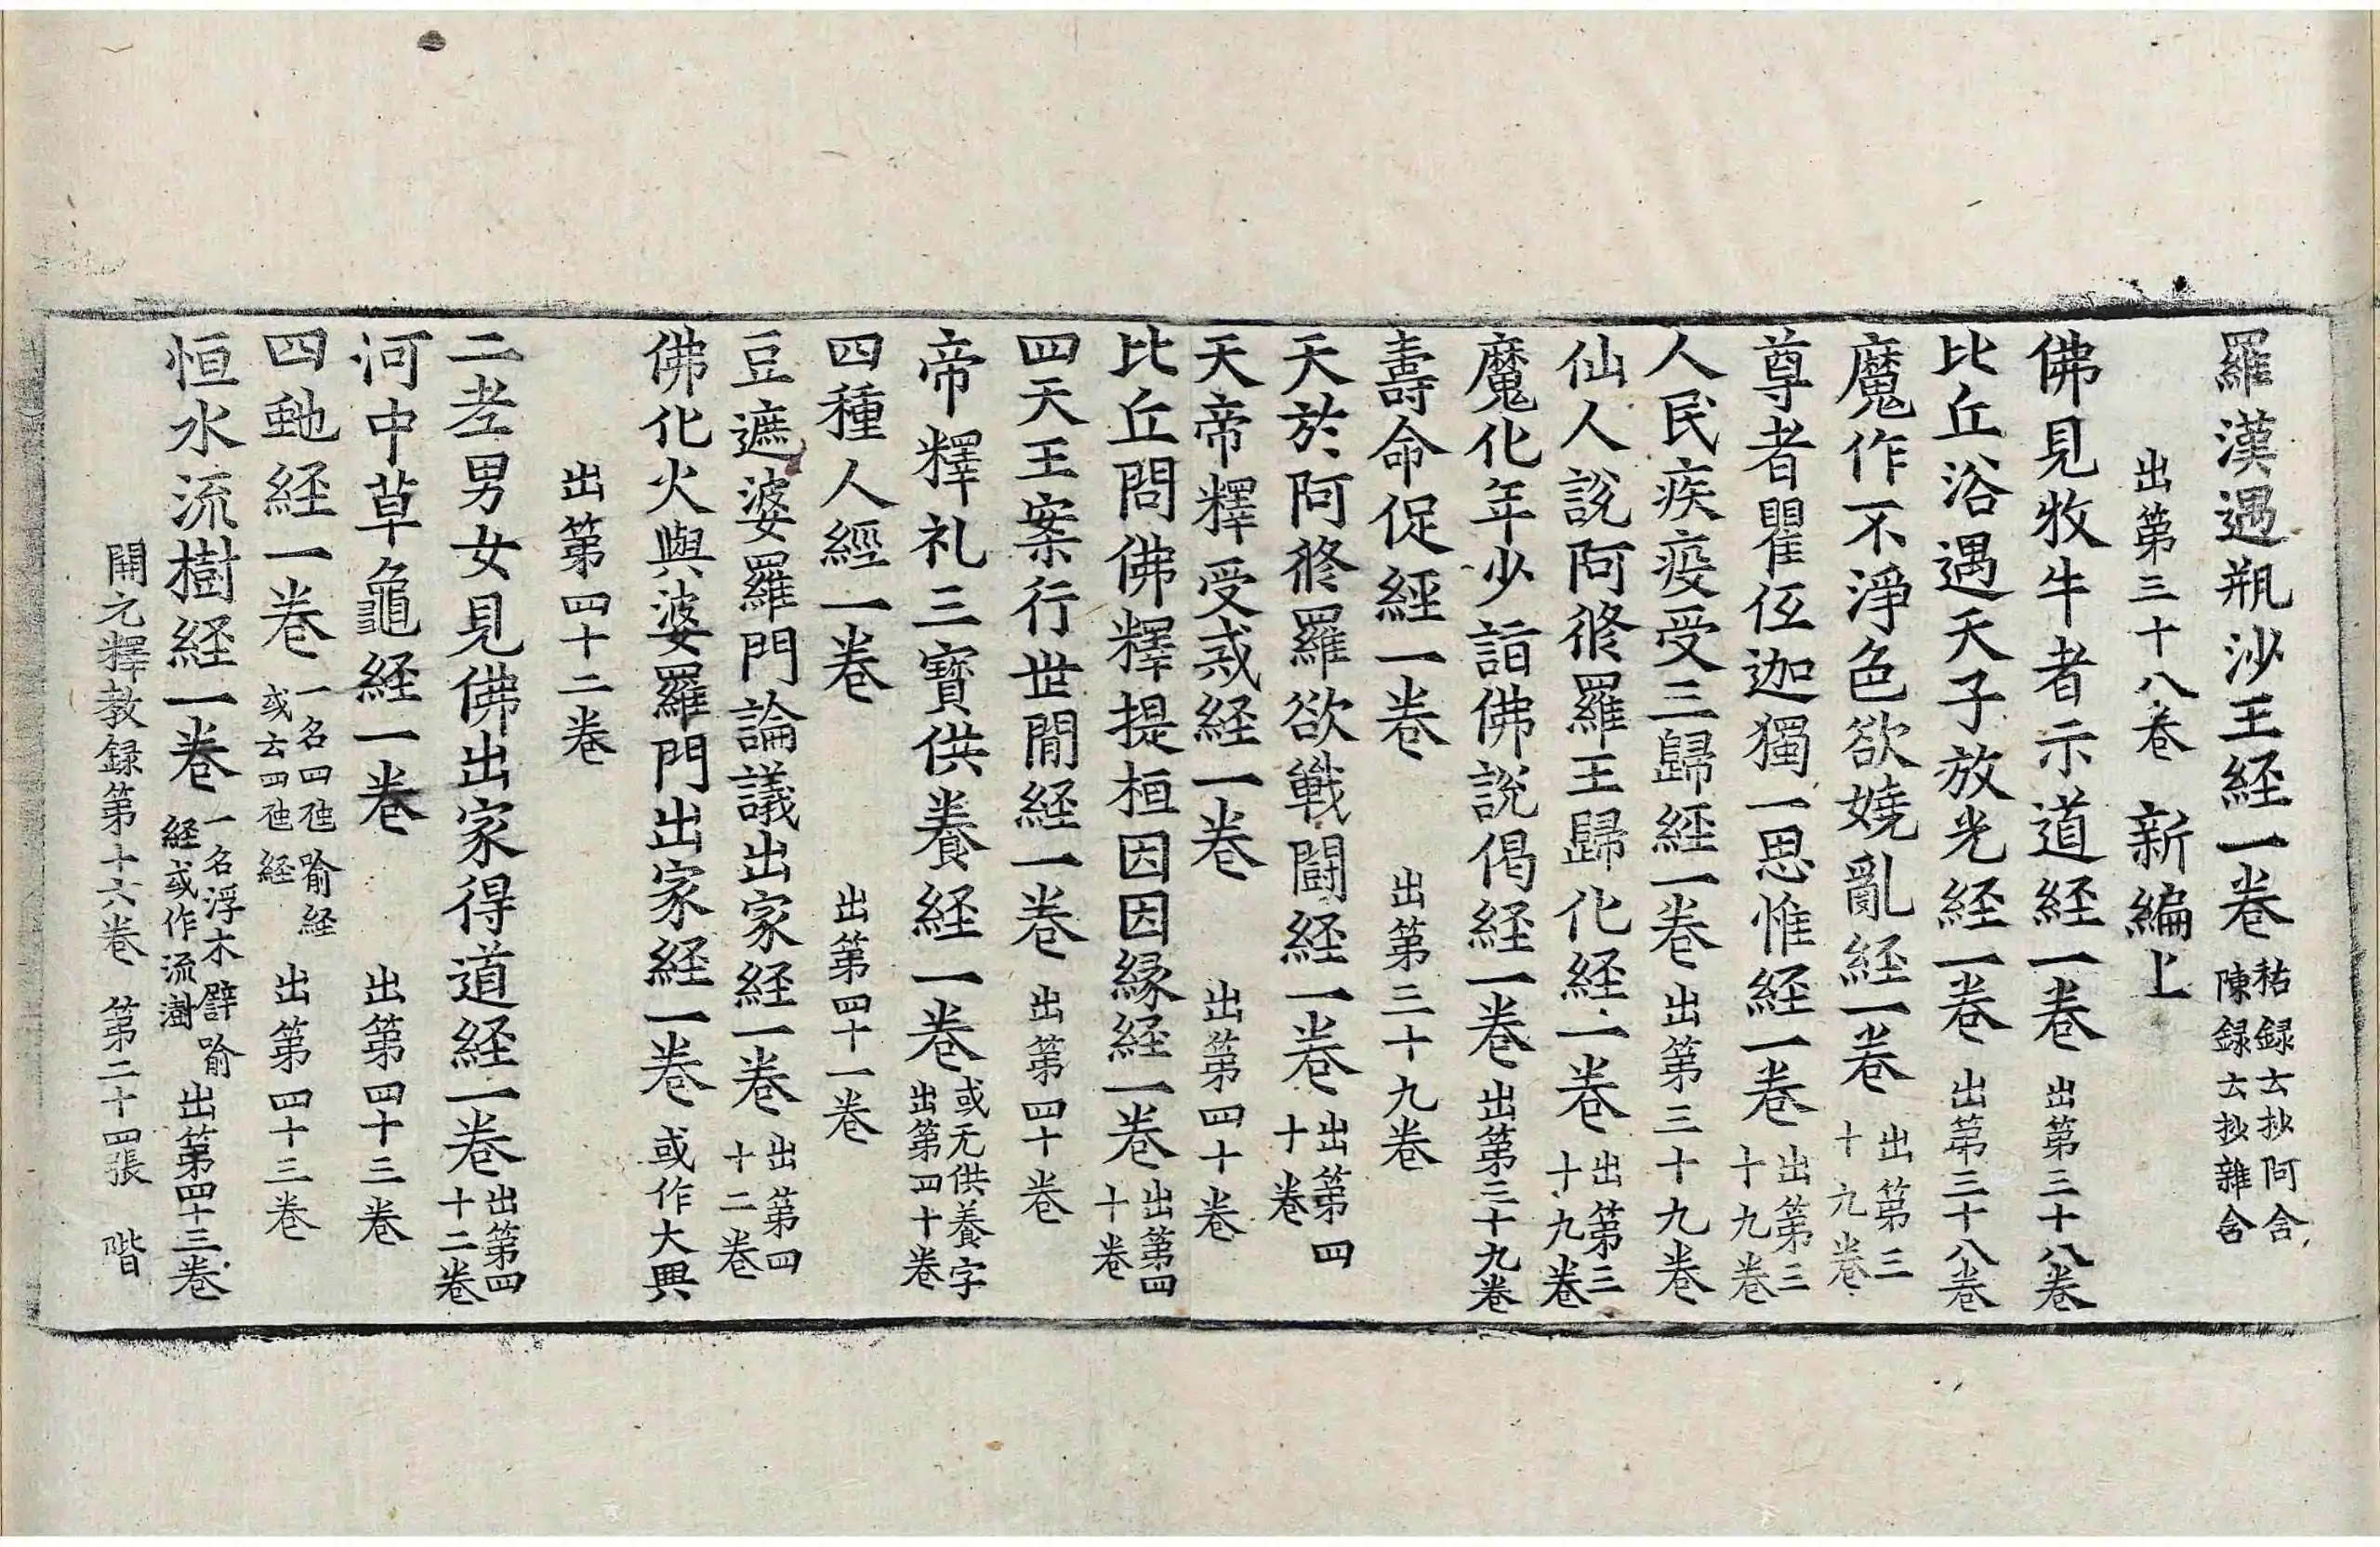 羅漢遇瓶沙王経一卷 祐録云抄阿含陳録云抄雜含
出第三十八卷 新編上
佛見牧牛者示道経一卷 出第三十八卷
比丘浴遇天子放光経一卷 出第三十八卷
魔作不淨色欲嬈亂経一卷 出第三十九卷
尊者瞿伍迦獨一思惟経一卷 出第三十九卷
人民疾疫受三歸経一卷 出第三十九卷
仙人說阿脩羅王歸化経一卷 出第三十九卷
魔化年少詣佛說偈経一卷 出第三十九卷
壽命促経一卷 出第三十九卷
天於阿脩羅欲戰鬪経一卷 出第四十卷
天帝釋受戒経一卷 出第四十卷
比丘問佛釋提桓因因緣経一卷 出第四十卷
四天王案行世閒経一卷 出第四十卷
帝釋礼三寶供養経一卷 或无供養字出第四十卷
四種人經一卷 出第四十一卷
豆遮婆羅門論議出家経一卷 出第四十二卷
佛化火與婆羅門出家経一卷 或作大興
出第四十二卷
二老男女見佛出家得道経一卷 出第四十二卷
河中草龜経一卷 出第四十三卷
四虵経一卷 一名四虵喻経或云四虵経 出第四十三卷
恒水流樹経一卷 一名浮木譬喻経或作流澍 出第四十三卷
開元釋教録第十六卷 第二十四張 階